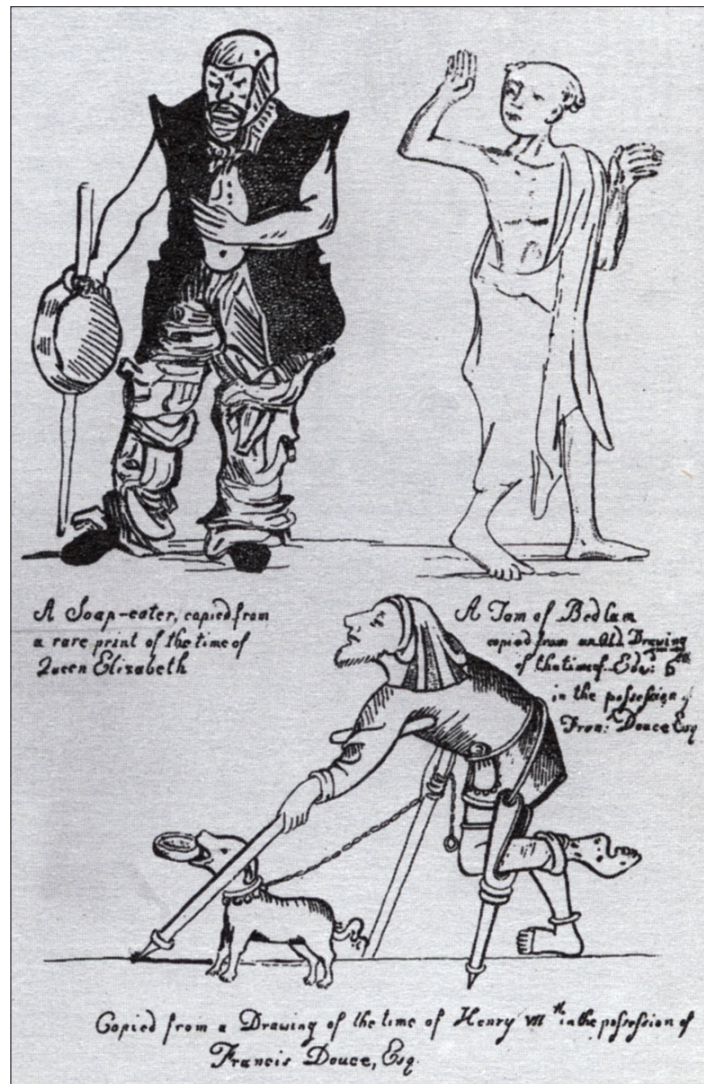 A Soap-eater, copied from
a rare print of the time of
Queen Elizabeth
A Tom of Bedlam
copied from an Old Drawing
of the time of Edwd: 6th
in the possession of
Fran: Douce Esq
Copied from a Drawing of the time of Henry VII th in the possession of
Francis Douce, Esq.